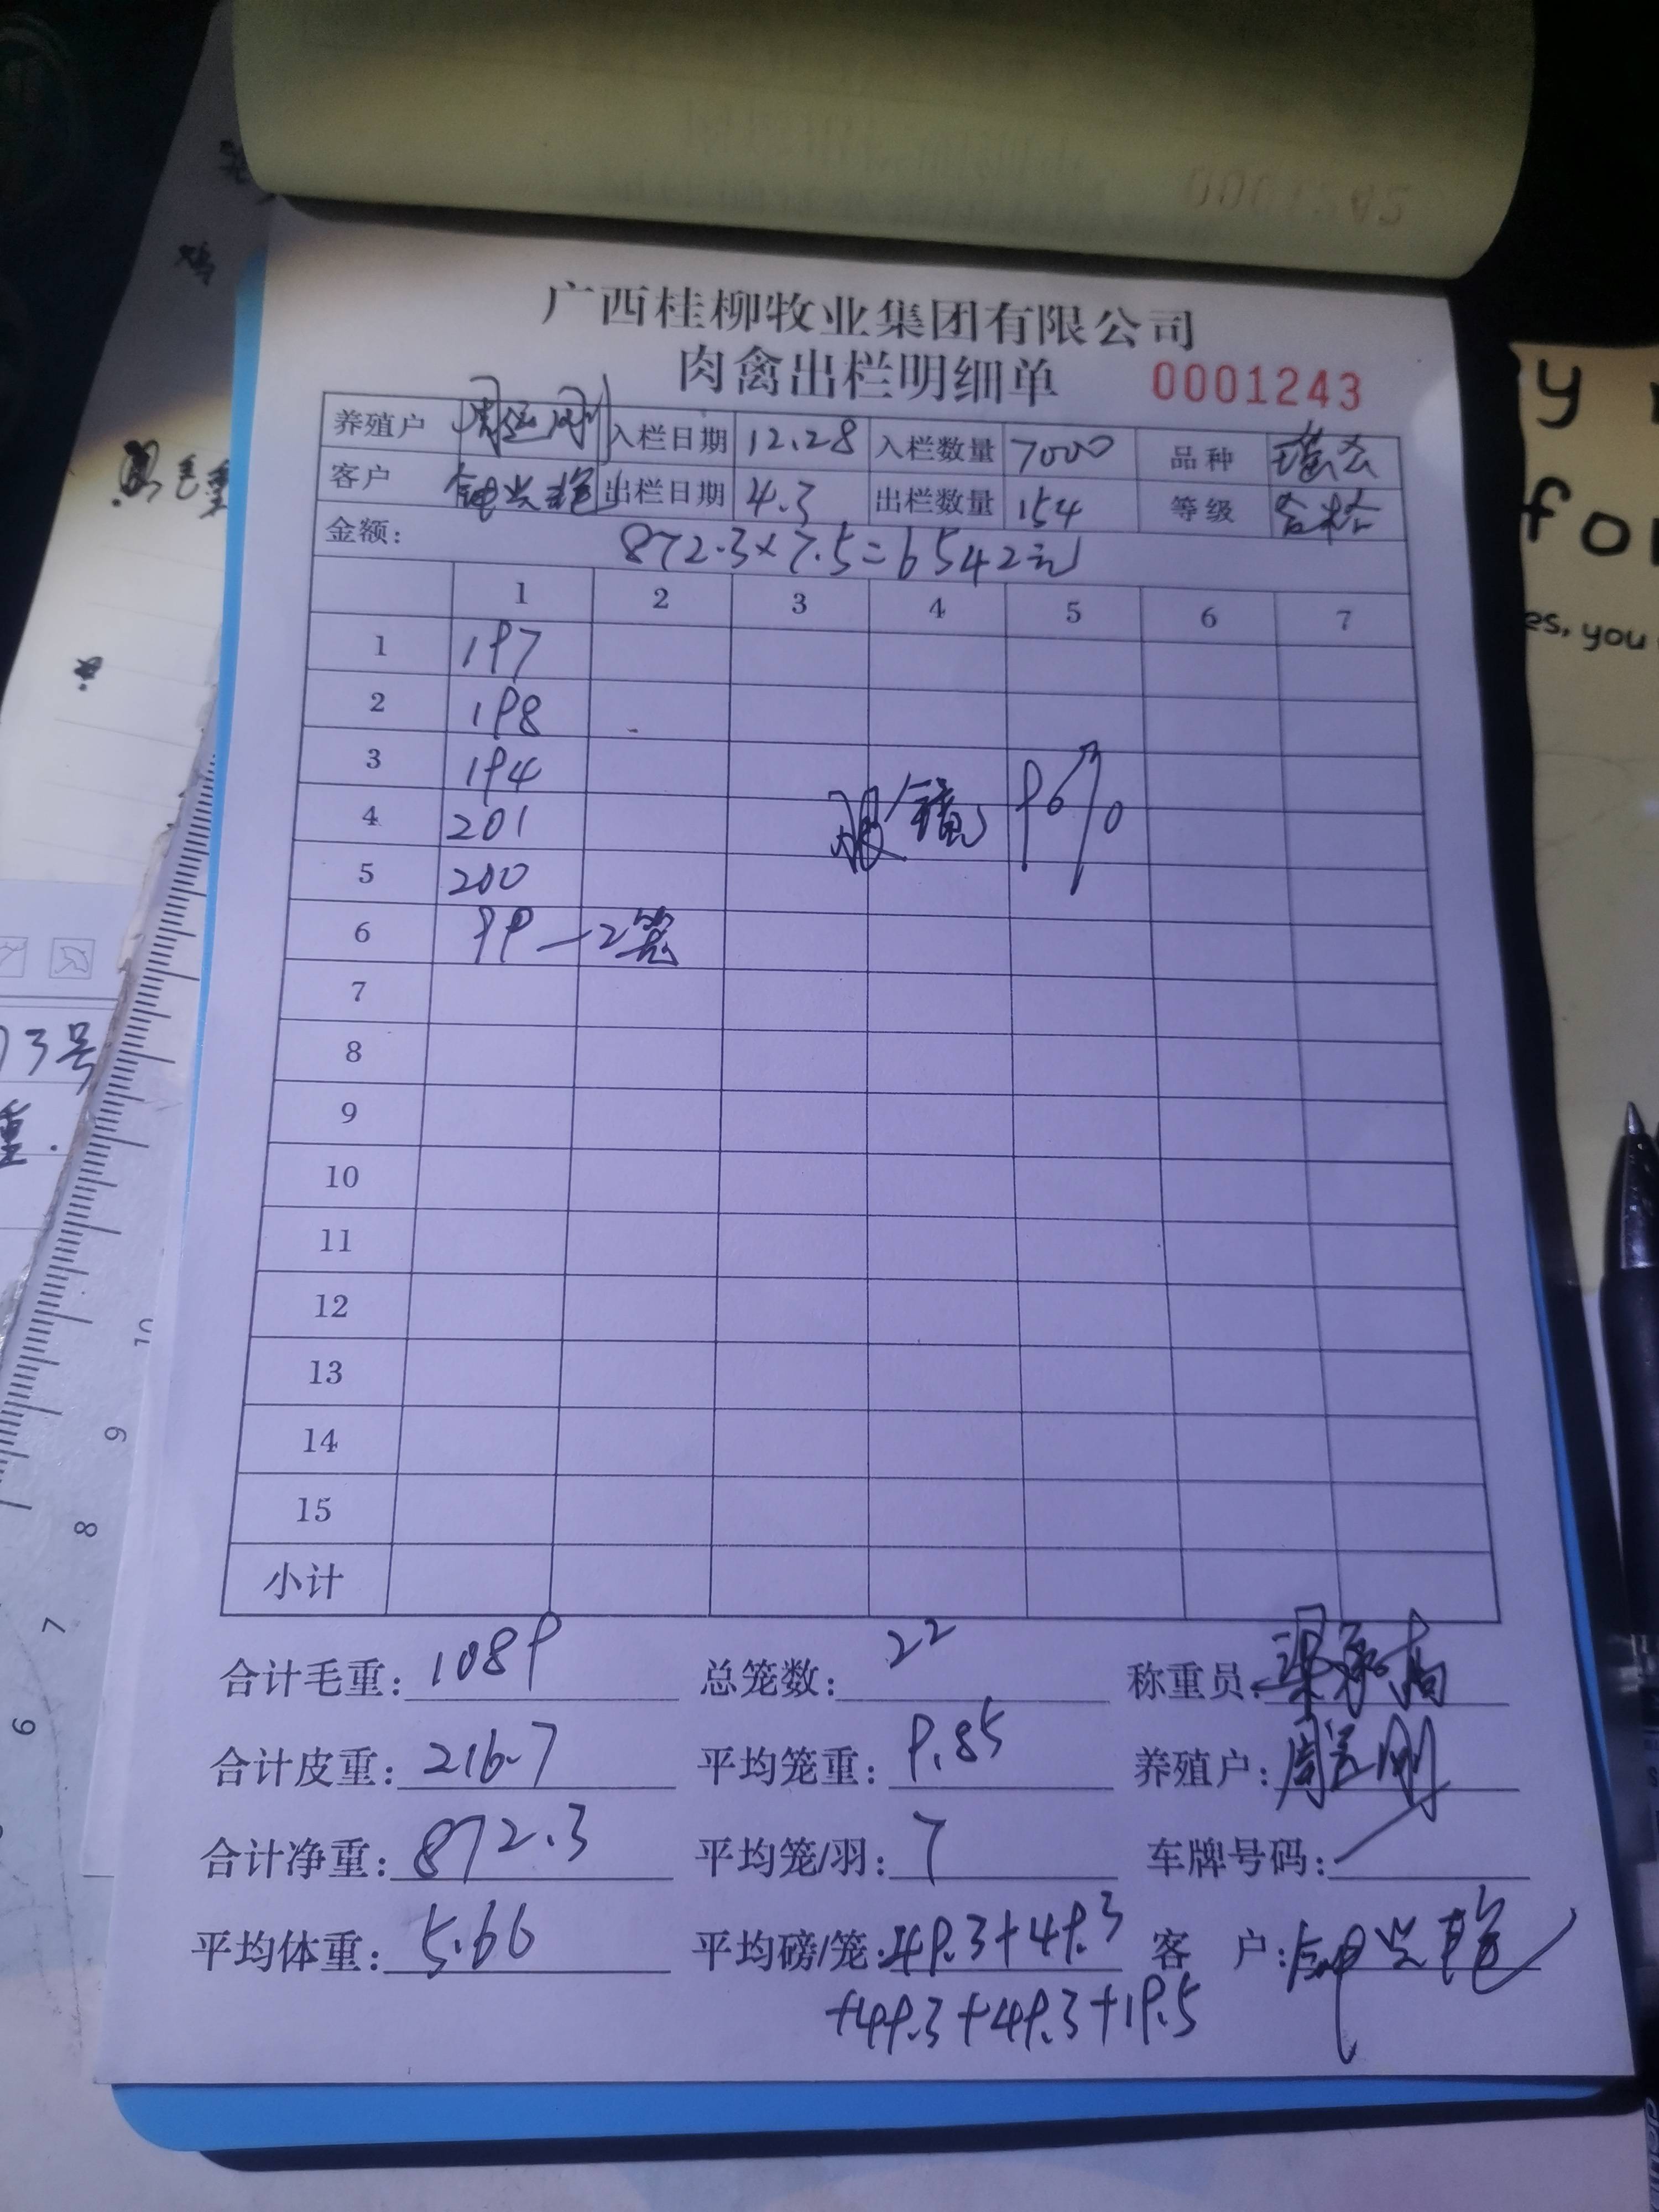 广西桂柳牧业集团有限公司
肉禽出栏明细单 0001243
养殖户 入栏日期 12.28 入栏数量 7000 品种 瑶公
客户 钟兴艳 出栏日期 4.3 出栏数量 154 等级 合格
金额: 872.3×7.5=6542元
1 2 3 4 5 6 7
1 197
2 198
3 194
4 201
5 200
6 99—2笼
96%
7
8
9
10
11
12
13
14
15
小计
合计毛重: 1089 总笼数: 22 称重员:
合计皮重: 216.7 平均笼重: 9.85 养殖户:
合计净重: 872.3 平均笼/羽: 7 车牌号码:
平均体重: 5.66 平均磅/笼: 49.3+49.3 客 户: 钟兴艳
+49.3+49.3+19.5
y
for
es, you
13号
重.
毛重
10
9
8
7
6